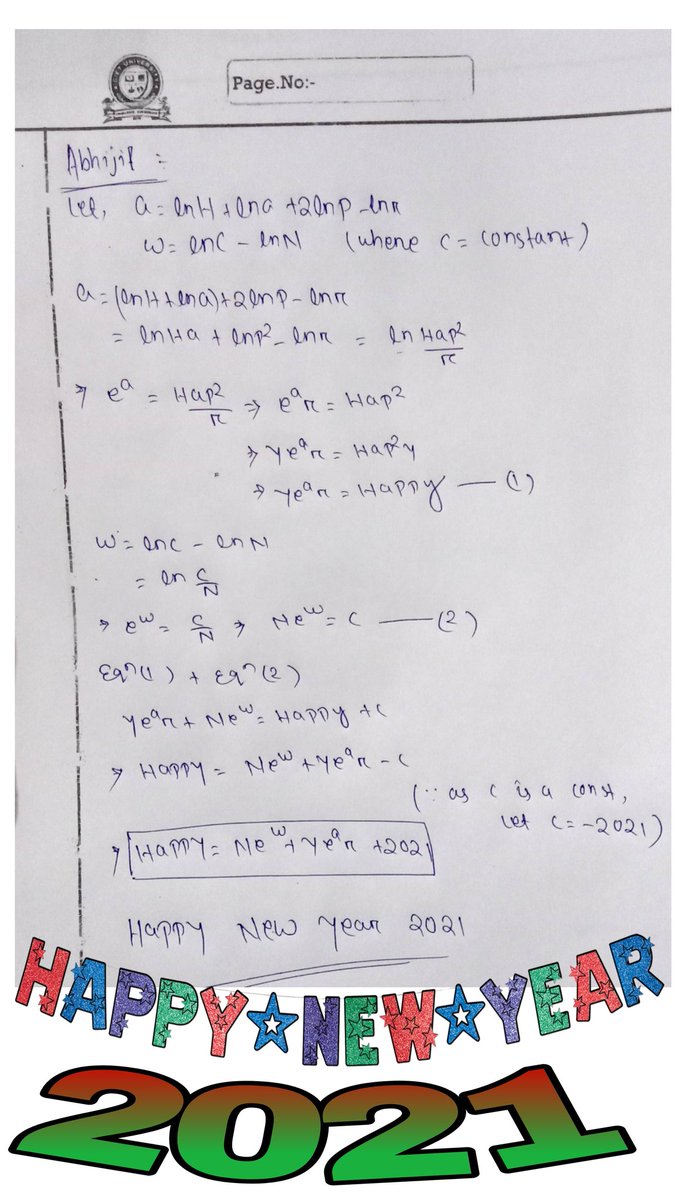 Page.No:-
Abhijit :-
Let, a = lnH + lna + 2lnp - lnr
w = lnC - lnN (where C = constant)
a = (lnH + lna) + 2lnp - lnr
= lnHa + lnp² - lnr = ln Hap²/r
⇒ eᵃ = Hap²/r ⇒ eᵃr = Hap²
⇒ yeᵃr = Hap²y
⇒ yeᵃr = Happy — (1)
w = lnC - lnN
= ln C/N
⇒ eʷ = C/N ⇒ Neʷ = C — (2)
Eqⁿ(1) + Eqⁿ(2)
yeᵃr + Neʷ = Happy + C
⇒ Happy = Neʷ + yeᵃr - C
(∵ as C is a const,
let C = -2021)
⇒ Happy = Neʷ + yeᵃr + 2021
Happy New Year 2021
HAPPY NEW YEAR
2021